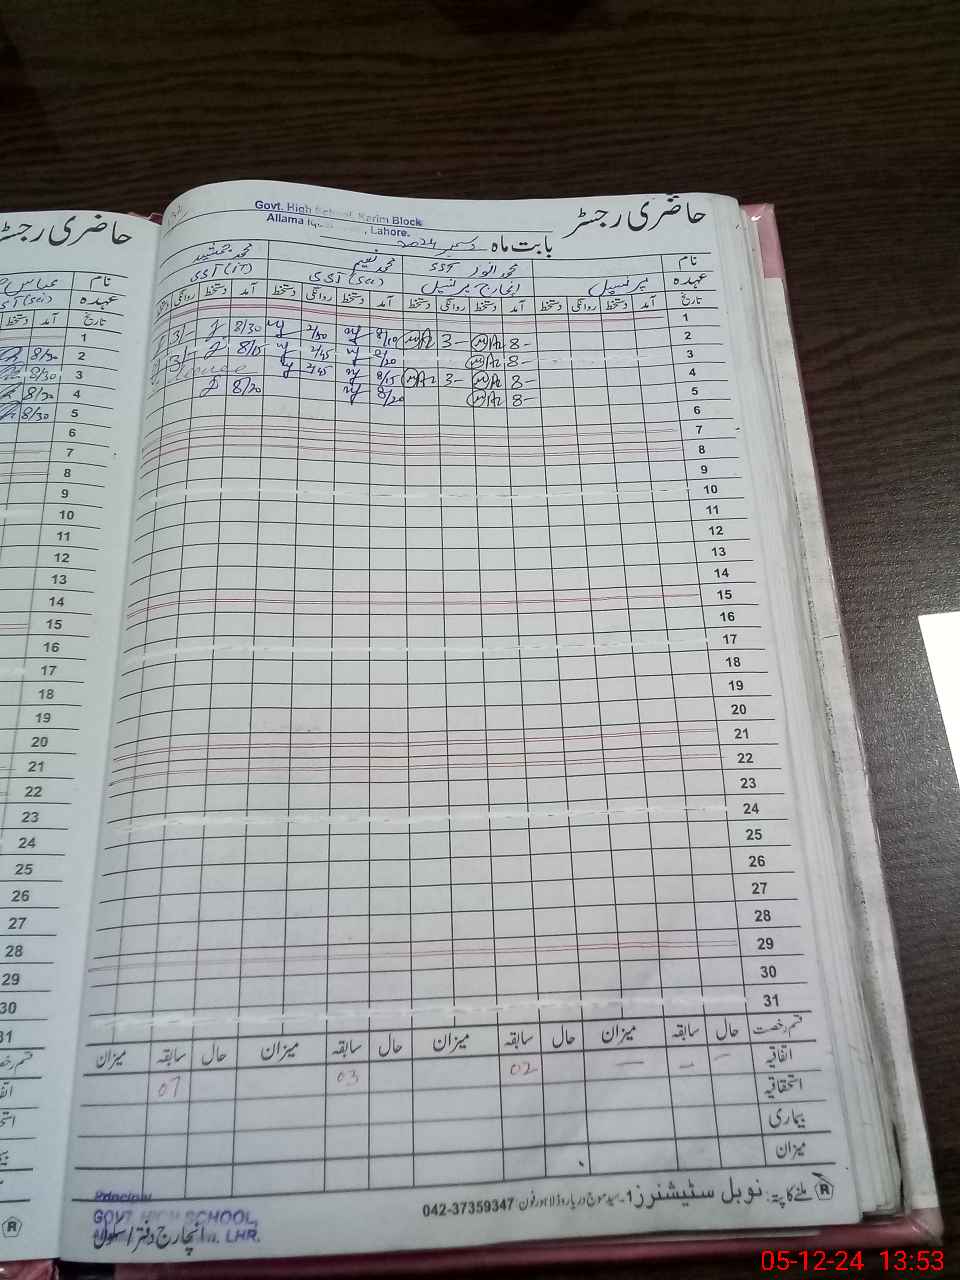 حاضری رجسٹر
Govt. High School, Karim Block
Allama Iq , Lahore.
حاضری رجسٹر
بابت ماہ دسمبر 2024
نام
محمد انور SST
محمد نعیم
محمد جمشید
عہدہ
پرنسپل
انچارج پرنسپل
(Sci)
(IT)
تاریخ
آمد دستخط روانگی دستخط آمد دستخط روانگی دستخط آمد دستخط روانگی دستخط آمد دستخط روانگی
1
2 8- 3- 8/10 2/30 8/30 3/-
3 8- 8/20 2/45 8/15 3/-
4 8- 3- 8/15 2/45
5 8- 8/20 8/20
6
7
8
9
10
11
12
13
14
15
16
17
18
19
20
21
22
23
24
25
26
27
28
29
30
31
قسم رخصت حال سابقہ میزان حال سابقہ میزان حال سابقہ میزان حال سابقہ میزان
اتفاقیہ — — — 02 03 07
استحقاقیہ
بیماری
میزان
ملنے کا پتہ: نوبل سٹیشنرز 1۔سید موج دریا روڈ لاہور فون: 042-37359347
Principal
GOVT HIGH SCHOOL,
LHR.
انچارج دفتر اسکول
نام عباس
عہدہ (Sci)
تاریخ آمد دستخط
1
2 8/30
3 8/30
4 8/30
5 8/30
6
7
8
9
10
11
12
13
14
15
16
17
18
19
20
21
22
23
24
25
26
27
28
29
30
31
05-12-24 13:53